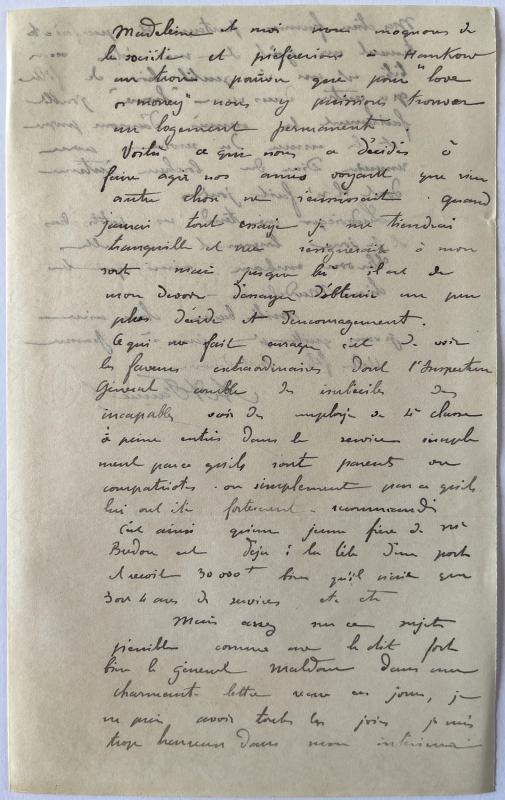 Madeleine et moi nous moquons de
la société et préférerions à Hankow
un trou pourvu que pour "love
or money" nous y puissions trouver
un logement permanent.
Voilà ce qui nous a décidés à
faire agir nos amis voyant que rien
autre chose ne réussissait. quand
j'aurai tout essayé je me tiendrai
tranquille et me résignerai à mon
sort mais jusque là il est de
mon devoir d'essayer d'obtenir un peu
plus d'aide et d'encouragement.
Ce qui me fait enrager c'est de voir
les faveurs extraordinaires dont l'Inspecteur
Général comble des imbéciles des
incapables voir des employés de 4e classe
à peine entrés dans le service simple
ment parce qu'ils sont parents ou
compatriotes. ou simplement parce qu'ils
lui ont été fortement recommandés
C'est ainsi qu'un jeune frère de
est déjà à la tête d'un port
et reçoit 30 000 bien qu'il n'aie que
3 ou 4 ans de services etc etc
Mais assez sur ce sujet
pénible comme me le dit fort
bien le général dans une
charmante lettre reçue ces jours, je
ne puis avoir toutes les joies je suis
trop heureux dans mon intérieur